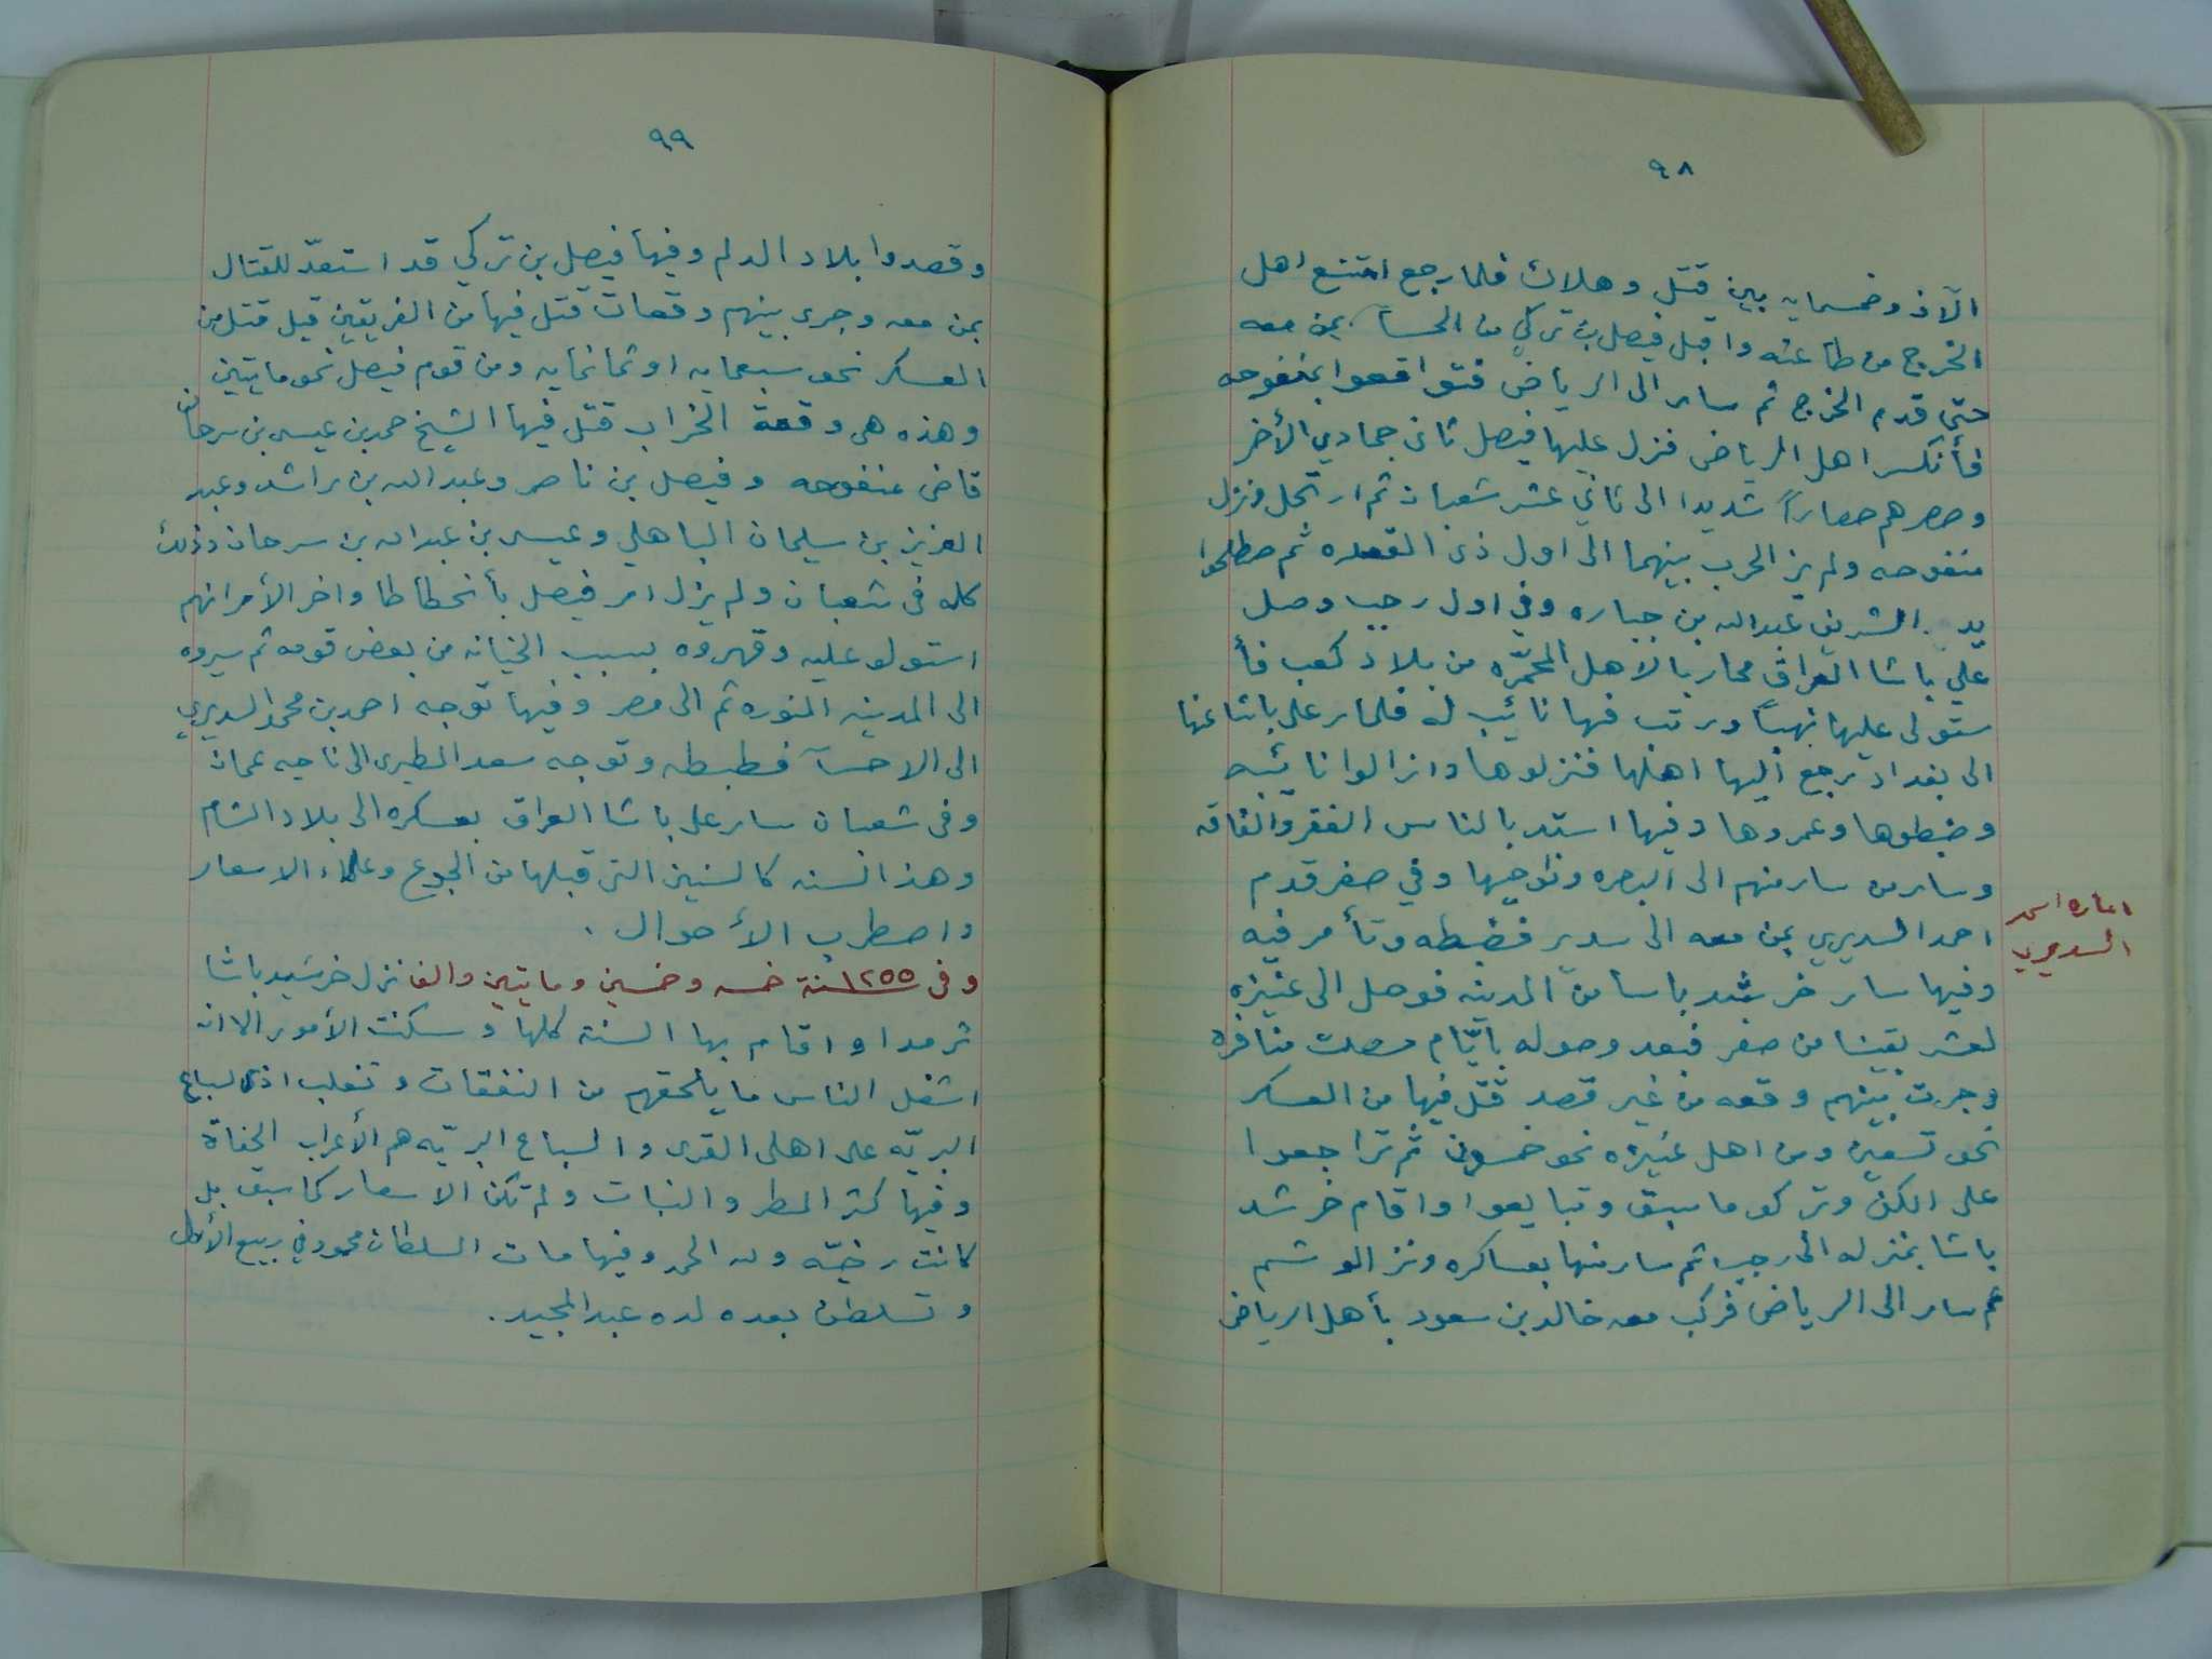 ٩٨
الآف وخمسمايه بين قتل وهلاك فلما رجع امتنع اهل
الخرج من طاعته واقبل فيصل بن تركي من الحسا بمن معه
حتى قدم الخرج ثم سار الى الرياض فتواقعوا بمنفوحه
فأنكسر اهل الرياض فنزل عليها فيصل ثانى جمادي الأخر
وحصرهم حصاراً شديدا الى ثاني عشر شعبان ثم ارتحل ونزل
منفوحه ولم يز الحرب بينهما الى اول ذى القعده ثم صطلحوا
يد الشريف عبدالله بن جباره وفي اول رجب وصل
علي باشا العراق محاربا لاهل المحمّره من بلاد كعب فأ
ستولى عليها نهباً ورتب فيها نائب له فلما سر على باشا عنها
الى بغداد رجع اليها اهلها فنزلوها وازالوا نائبه
وضبطوها وعمروها وفيها استد بالناس الفقر والفاقه
وسار من سار منهم الى البصره ونواحيها وفي صفر قدم
احمد السديري بمن معه الى سدير فضبطه وتأمر فيه
اماره احمد
السديري
وفيها سار خرشد باسا من المدينه فوصل الى عنيزه
لعشر بقينا من صفر فبعد وصوله بايّام حصلت منافره
وجرت بينهم وقعه من غير قصد قتل فيها من العسكر
نحو تسعين ومن اهل عنيزه نحو خمسون ثم تراجعوا
على الكن وتركو ما سبق وتبايعوا واقام خرشد
باشا بمنزله الى رجب ثم سار منها بعساكره ونز الوشم
ثم سار الى الرياض فركب معه خالد بن سعود بأهل الرياض
٩٩
وقصدوا بلاد الدلم وفيها فيصل بن تركي قد استعدّ للقتال
بمن معه وجرى بينهم وقعات قتل فيها من الفريقين قيل قتل من
العسكر نحو سبعمايه او ثمانمايه ومن قوم فيصل نحو مايتين
وهذه هى وقعة الخراب قتل فيها الشيخ حمد بن عيسى بن سرحان
قاضى منفوحه وفيصل بن ناصر وعبدالله بن راشد وعبد
العزيز بن سليمان الباهلي وعيسى بن عبدالله بن سرحان وذلك
كله فى شعبان ولم يزل امر فيصل بأنحطاطا واخر الأمر انهم
استولو عليه وقهروه بسبب الخيانه من بعض قومه ثم سيروه
الى المدينه المنوره ثم الى مصر وفيها توجه احمد بن محمد السديري
الى الاحسآ فطبطه وتوجه سعد المطيرى الى ناحيه عمان
وفى شعبان سار على باشا العراق بعسكره الى بلاد الشام
وهذا السنه كالسنين التى قبلها من الجوع وغلاء الاسعار
واصطرب الأحوال .
وفى ١٢٥٥ سنة خمسه وخمسين ومايتين والف نزل خرشيد باشا
ثرمدا واقام بها السنة كلها وسكنت الأمور الا انه
اشغل الناس ما يلحقهم من النفقات وتغلب اذى لسباع
البريّه على اهلى القرى والسباع البريّه هم الأعراب الجفاة
وفيها كثر المطر والنبات ولم تكن الاسعار كما سبق بل
كانت رخيّه ولله الحمد وفيها مات السلطان محمود في ربيع الأول
وتسلطن بعده لده عبد المجيد .